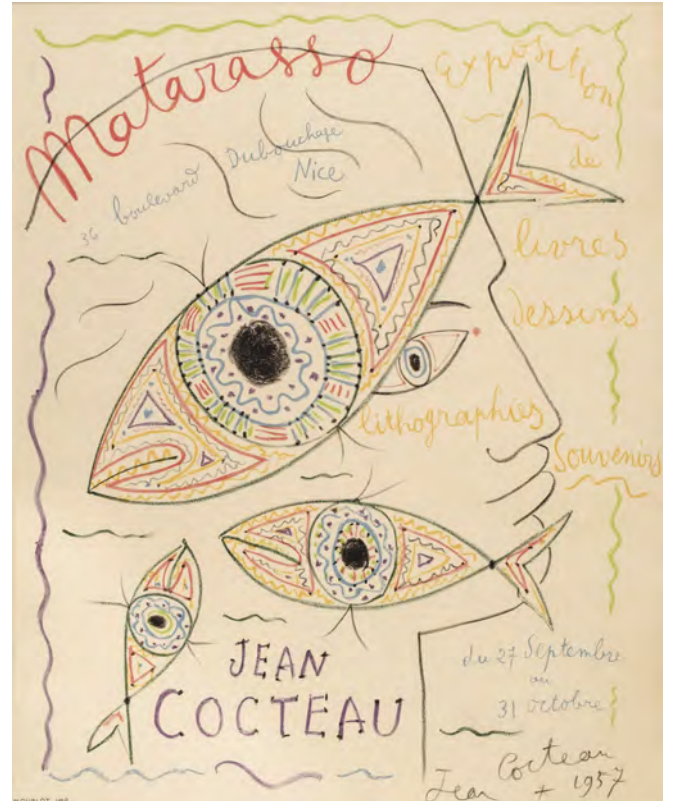 Matarasso
36 boulevard Dubouchage
Nice
Exposition
de
livres
dessins
lithographies
Souvenirs
JEAN
COCTEAU
du 27 Septembre
au
31 octobre
Jean Cocteau
* 1957